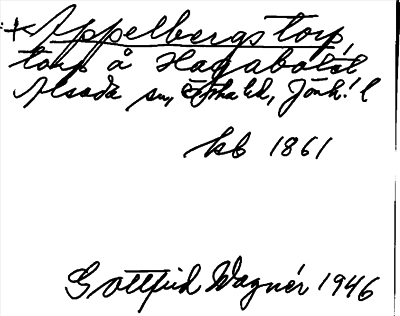 Appelbergstorp,
torp å Hagaböläl
Alseda sn, Ö:a hd, Jönk. l
kb 1861
Gottfrid Wagnér 1946